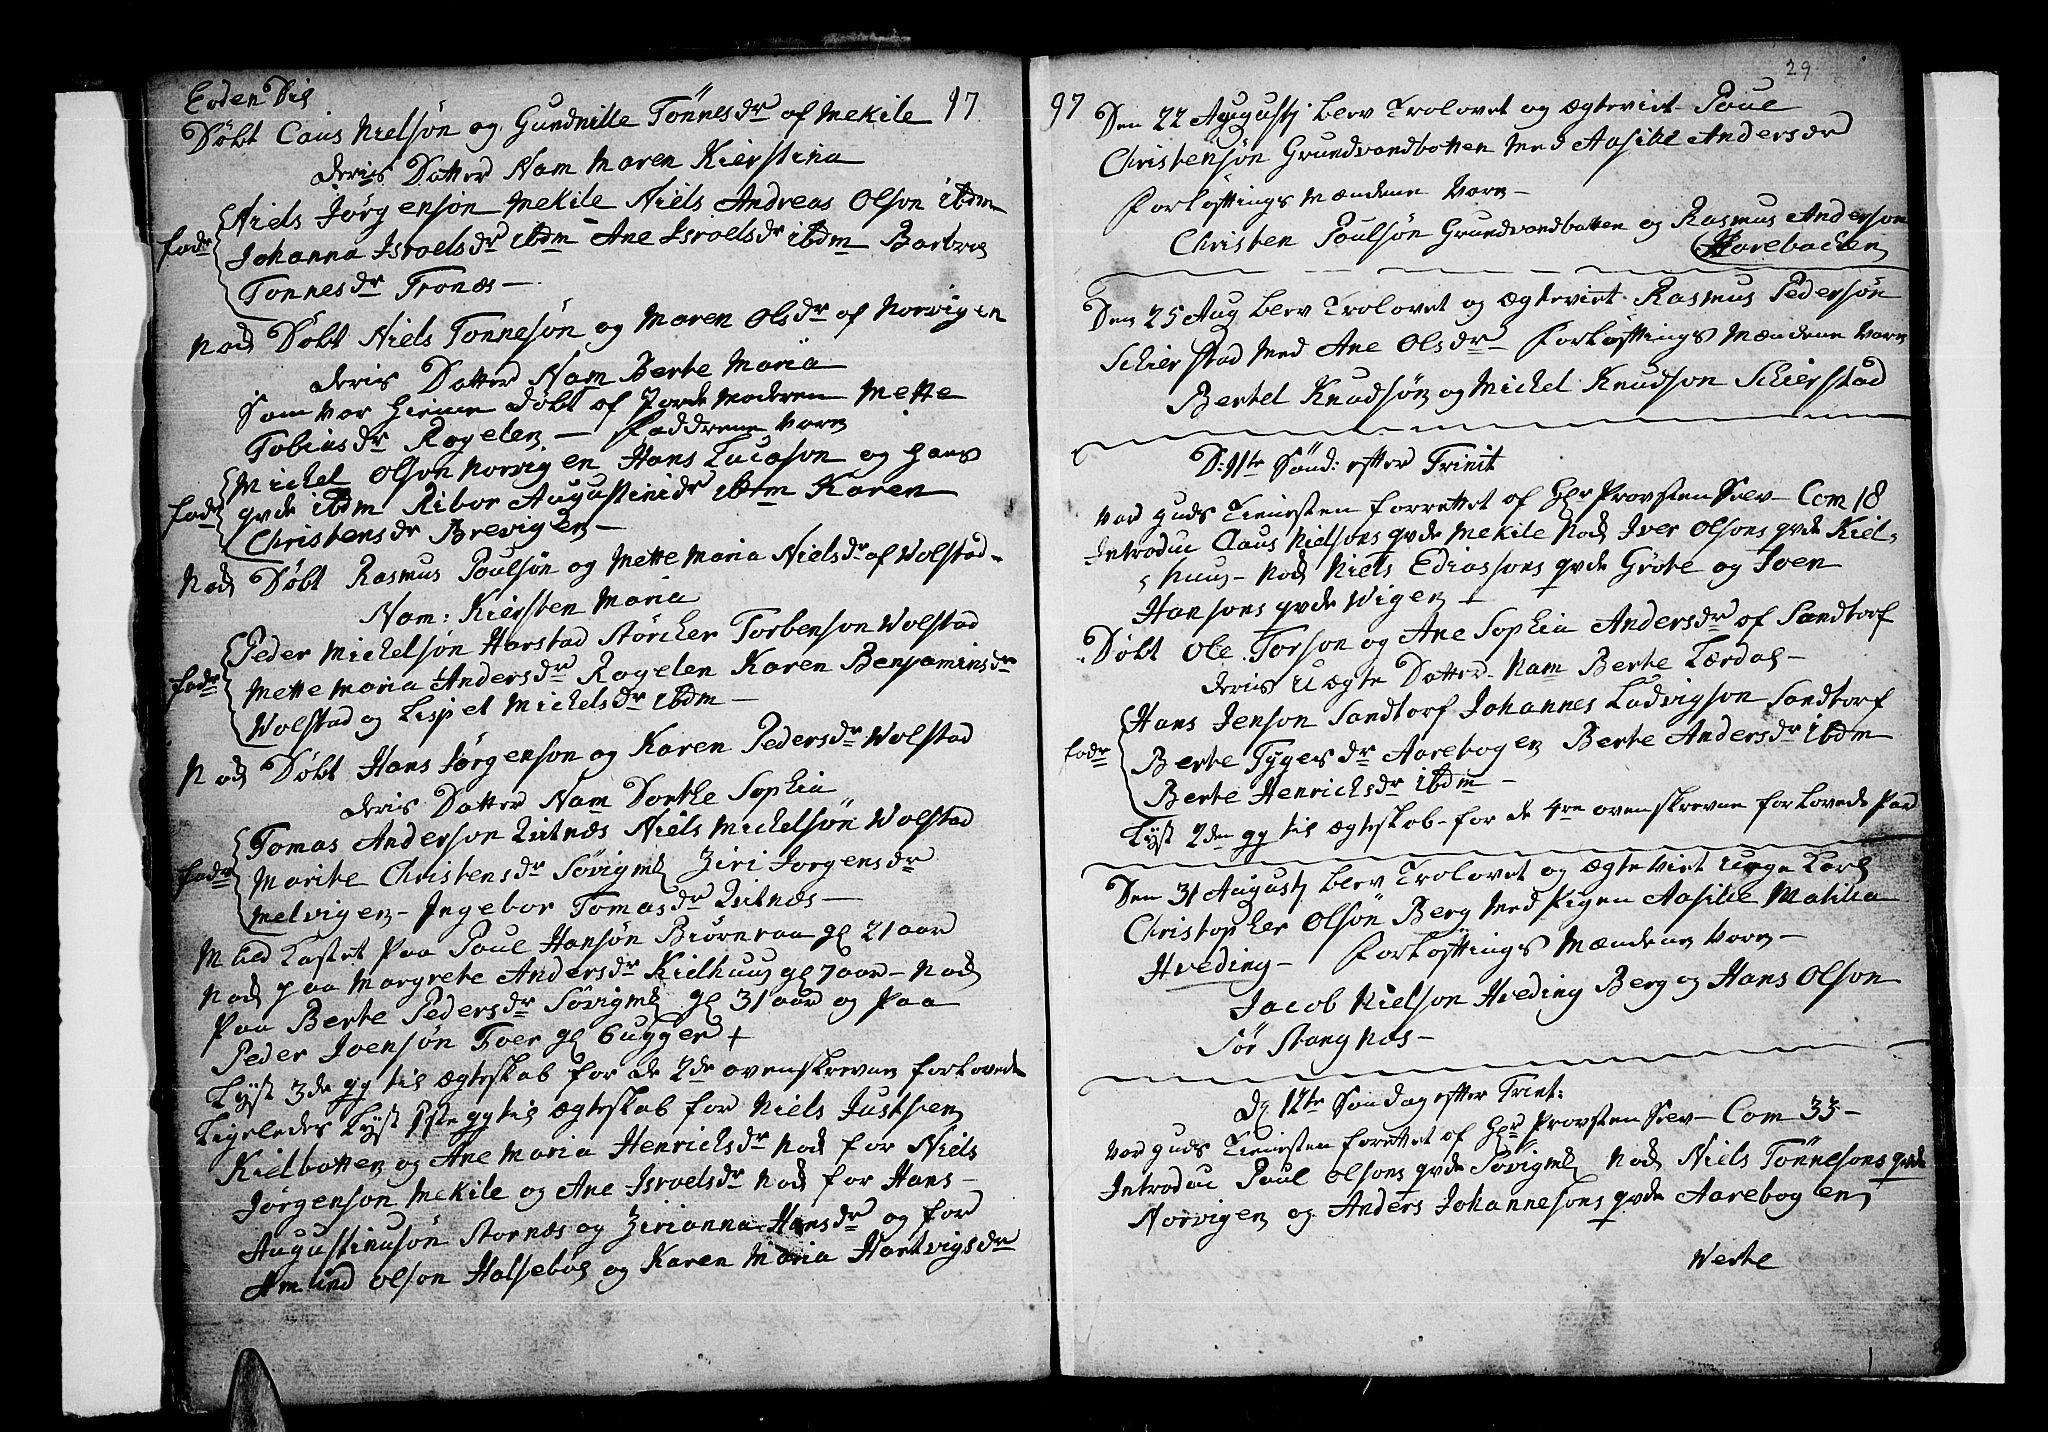 Eoden Die
97
Døbt Caus Nielsøn og Gundnille Tønnesdr af Mekile
deris Datter Nam Maren Kierstina
Niels Jørgenson Mekile Niels Andreas Olson ibdm
fadr Johanna Isroelsdr ibdm Ane Isroelsdr ibdm Barbra
Tonnesdr Tronæs
Nod Døbt Niels Tonnesøn og Maren Olsdr af Norvigen
deris Datter Nam Berte Maria
Som var hieme døbt af Jordemoderen Mette
Tobiasdr Rogelen Faddrene vare
Michel Olson Norvigen Hans Lucason og hans
fadr qvde ibdm Ribor Augustinidr ibdm Karen
Christensdr Brevigen
Nod Døbt Rasmus Poulsøn og Mette Maria Nielsdr af Wolstad
Nam: Kiersten Maria
Peder Michelsøn Harstad Störcker Torbenson Wolstad
fadr Mette Maria Andersdr Rogelen Karen Benjaminsdr
Wolstad og Lispet Michelsdr ibdm
Nod Døbt Hans Jørgenson og Karen Pedersdr Wolstad
deris Datter Nam Dorthe Sophia
Tomas Anderson Qvitnæs Niels Michelsøn Wolstad
fadr Marite Christensdr Søvigml Ziri Jorgensdr
Melvigen Ingebor Tomasdr Qvitnæs
Muld Kastet paa Poul Hansøn Biørnraa gl 21 aar
Nod paa Margrete Andersdr Kielhuus gl 7 aar Nod
paa Berte Pedersdr Søvigml gl 31 aar og paa
Peder Ivensøn Foer gl 6 ugger
Lyst 3de gg til ægteskab for de 2de ovenskrevne forlovede
Ligeledes Lyst 1ste gg til ægteskab for Niels Justsen
Kielbotten og Ane Maria Henrichsdr Nod for Niels
Jørgenson Mekile og Ane Isroelsdr Nod for Hans
Augustinusøn Stornæs og Zirianna Hansdr og for
Amund Olson Halsebøe og Karen Maria Hartvigsdr
29
97
Den 22 Augustj blev Trolovet og ægteviet Poul
Christensøn Grundvandbotten med Aasille Andersdr
Forløftings mændene vare
Christen Poulsøn Grundvandbotten og Rasmus Anderson
Harebacken
Den 25 Aug blev Trolovet og ægteviet Rasmus Pedersøn
Schierstad med Ane Olsdr Forløftings mændene vare
Bertel Knudsøn og Michel Knudson Schierstad
D: 11te Sönd: efter Trinit
var guds Tienesten forrettet af Hr Provsten Selv Com 18
Introduc Claus Nielsons qvde Mekile Nod Iver Olsons qvde Kiel
huus Nod Niels Ediassons qvde Grøte og Iven
Hansons qvde Wigen
Døbt Ole Torson og Ane Sophia Andersdr af Sandtorf
deris Uægte Datter Nam Berte Lærdal
Hans Jenson Sandtorf Johannes Ludvigson Sandtorf
fadr Berte Tygesdr Aarebogen Berte Andersdr ibdm
Berte Henrichsdr ibdm
Lyst 2den gg til ægteskab for de 4re ovenskrevne forlovede Par
Den 31 Augustj blev Trolovet og ægteviet unge Karl
Christopher Olsøn Berg med Pigen Aasille Matilia
Hveding Forløftings mændene vare
Jacob Nielson Hveding Berg og Hans Olson
Sør Stangnæs
D 12te Søndag efter Trinit:
var guds Tienesten forettet af Hr Provsten Selv Com 33
Introduc Poul Olsons qvde Søvigml Nod Niels Tönnesons qvde
Norvigen og Anders Johannesons qvde Aarebogen
Verte